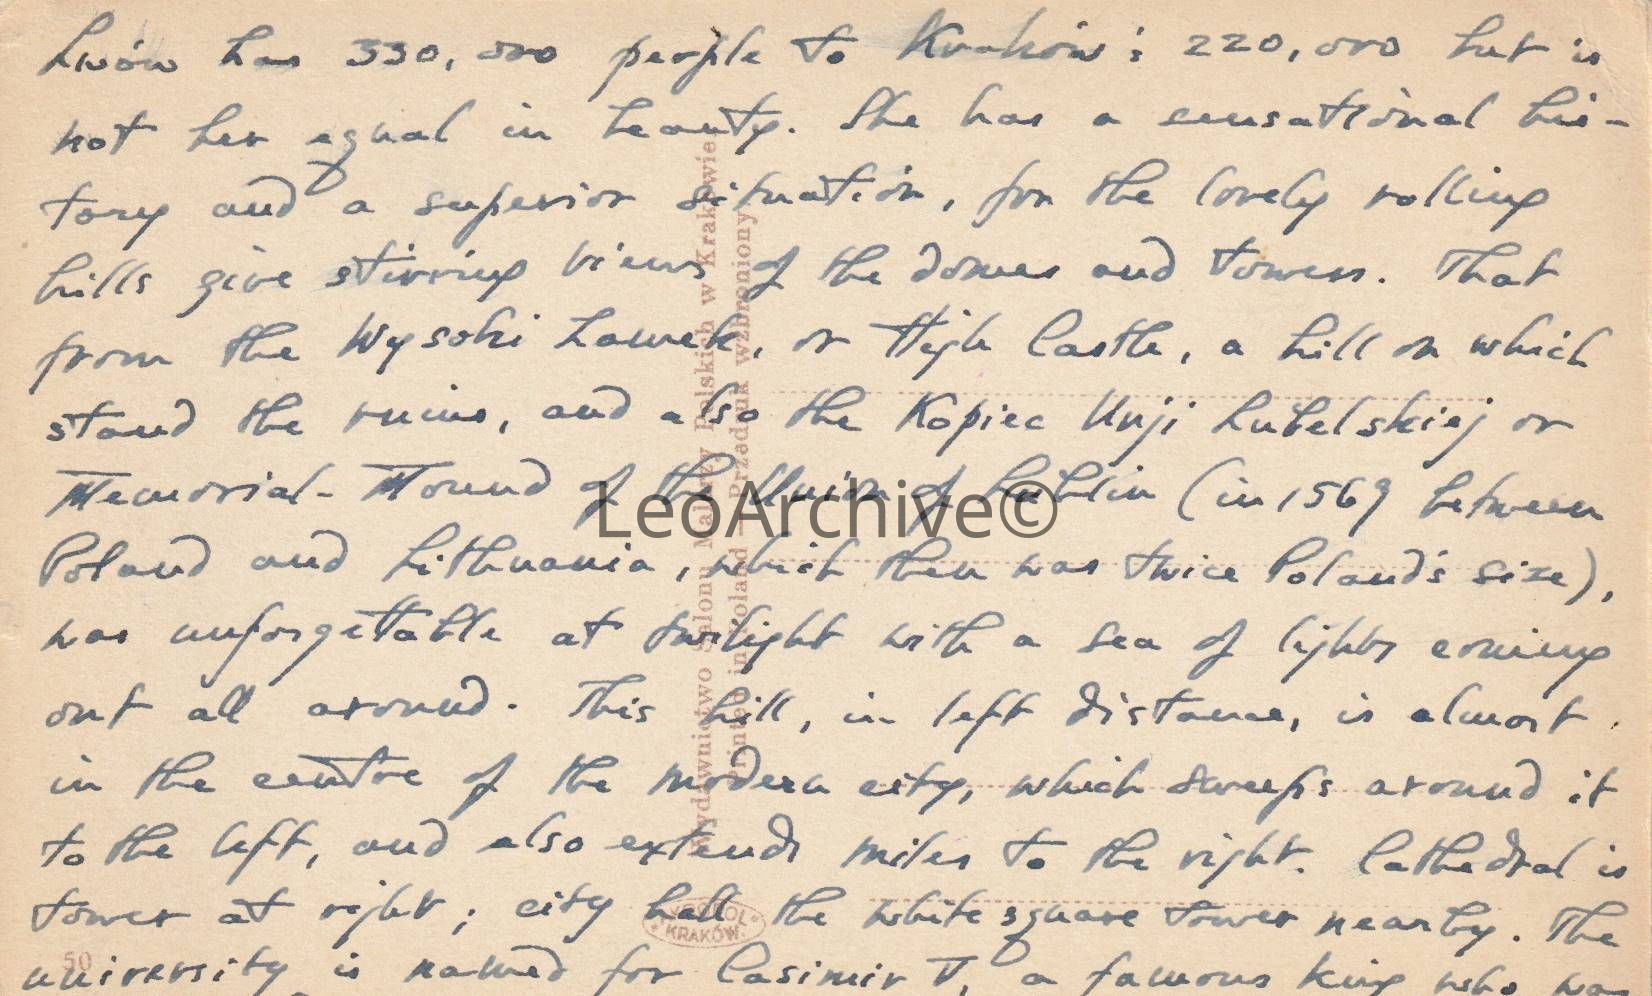 Lwów has 330,000 people to Kraków's 220,000 but is
not her equal in beauty. She has a sensational his-
tory and a superior situation, for the lovely rolling
hills give stirring views of the domes and towers. That
from the Wysoki Zamek, or High Castle, a hill on which
stand the ruins, and also the Kopiec Unji Lubelskiej or
Memorial-Mound of the Union of Lublin (in 1569 between
Poland and Lithuania, which then was twice Poland's size),
was unforgettable at twilight with a sea of lights coming
out all around. This hill, in left distance, is almost
in the centre of the modern city, which sweeps around it
to the left, and also extends miles to the right. Cathedral is
tower at right; city hall the white square tower nearby. The
university is named for Casimir I, a famous king who was
Wydawnictwo Salonu Malarzy Polskich w Krakowie
Printed in Poland Przedruk wzbroniony
LeoArchive©
KRAKÓW.
50